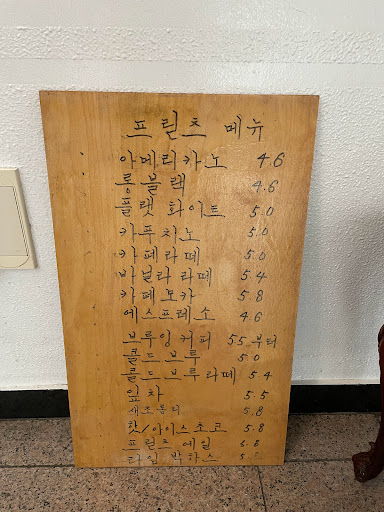 프릳츠 메뉴
아메리카노 4.6
롱블랙 4.6
플랫 화이트 5.0
카푸치노 5.0
카페라떼 5.0
바닐라 라떼 5.4
카페모카 5.8
에스프레소 4.6
브루잉 커피 5.5.부터
콜드브루 5.0
콜드브루라떼 5.4
잎차 5.5
5.8
핫/아이스초코 5.8
프릳츠 에일 5.8